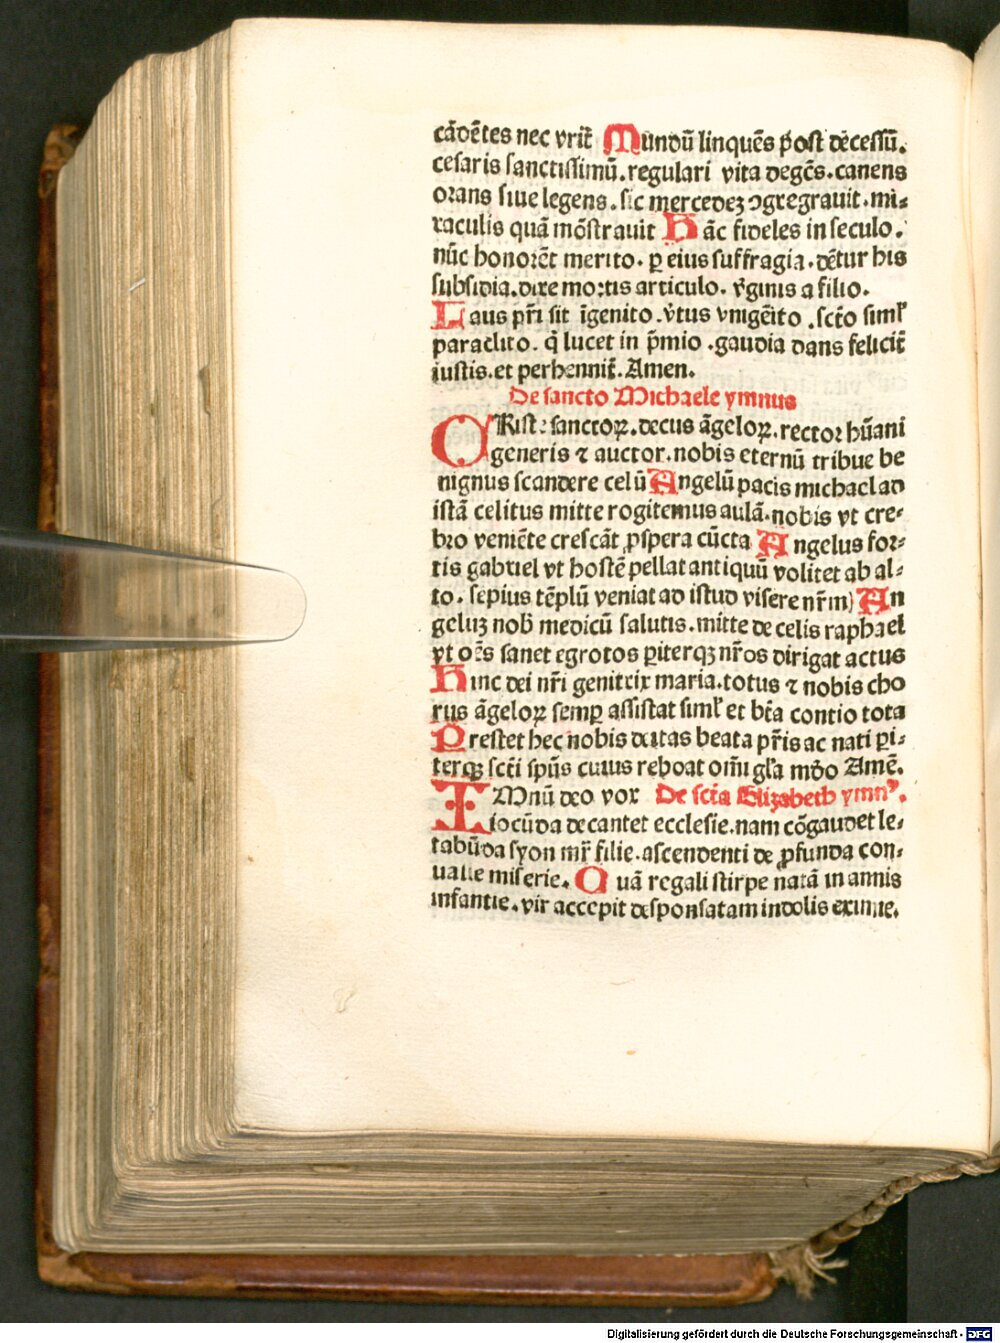 cādētes nec vrit̄ Mundū linquēs p̄ost dēcessū.
cesaris sanctissimū.regulari vita degēs.canens
orans siue legens.sic mercedeꝫ ꝯgregrauit.mi⸗
raculis quā mōstrauit Hāc fideles in seculo.
nūc honorēt merito.ꝑ eius suffragia.dētur his
subsidia.dire mortis articulo.v̄ginis a filio.
Laus pr̄i sit īgenito.v̄tus vnigēito.scto siml̕
paraclito.q̇ lucet in p̄mio.gaudia dans felicit̄
iustis.et perhennit̄.Amen.
De sancto Michaele ymnus
CRiste sanctoꝝ.decus āgeloꝝ.rector hūani
generis ⁊ auctor.nobis eternū tribue be
nignus scandere celū Angelū pacis michael ad
istā celitus mitte rogitemus aulā.nobis vt cre⸗
bro veniēte crescāt ꝓspera cūcta Angelus for⸗
tis gabriel vt hostē pellat antiquū volitet ab al⸗
to.sepius tēplū veniat ad istud visere nr̄m) An
geluꝫ nob̄ medicū salutis.mitte de celis raphael
vt oēs sanet egrotos ꝑiterqꝫ nr̄os dirigat actus
Hinc dei nr̄i genitrix maria.totus ⁊ nobis cho
rus āgeloꝝ semꝑ assistat siml̕ et bt̄a contio tota
Prestet hec nobis deitas beata pr̄is ac nati ꝑi⸗
terqꝫ scti spūs cuius reboat om̄i gl̄a mdo Amē.
YMnū deo vox De scta Elizabeth ymnꝰ.
iocūda decantet ecclesie.nam cōgaudet le⸗
tabūda syon mr̄ filie.ascendenti de ꝓfunda con⸗
ualle miserie. Quā regali stirpe natā in annis
infantie.vir accepit desponsatam indolis eximie.
Digitalisierung gefördert durch die Deutsche Forschungsgemeinschaft - DFG